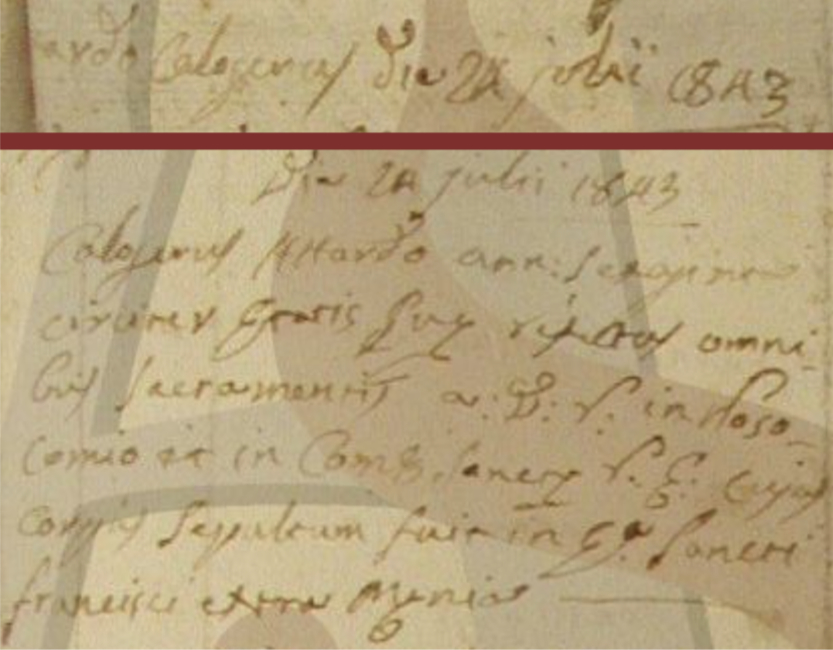 ardo Calogerus Die 24 julii 1843
Die 24 julii 1843
Calogerus Attardo ann:
circiter etatis suę refectus omni-
bus sacramentis a: D: S. in Noso-
comio et in Com: Sanctę S. E. cujus
corpus sepultum fuit in Ecc. Sancti
Francisci extra Menia